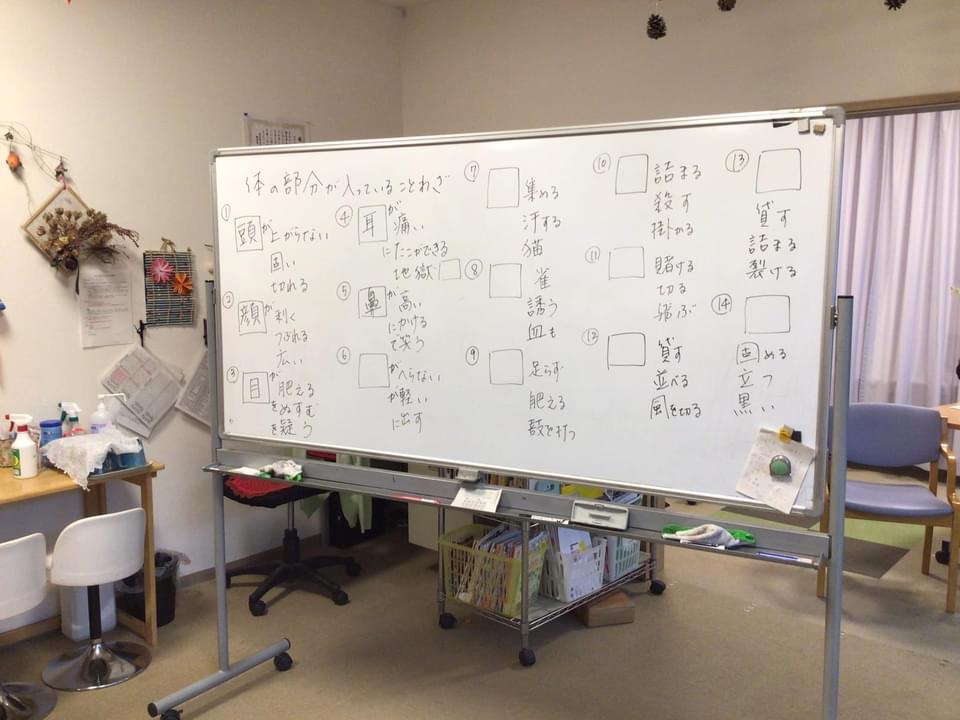 体の部分が入っていることわざ
① 頭が上がらない
固い
切れる
② 顔が利く
つぶれる
広い
③ 目が肥える
をぬすむ
を疑う
④ 耳が痛い
にたこができる
地獄
⑤ 鼻が高い
にかける
で笑う
⑥ がへらない
が軽い
に出す
⑦ 集める
汗する
猫
⑧ 雀
誘う
血も
⑨ 足らず
肥える
鼓を打つ
⑩ 詰まる
殺す
掛かる
⑪ 賭ける
切る
⑫ 貸す
並べる
風を切る
⑬ 貸す
詰まる
裂ける
⑭ 固める
立つ
黒い